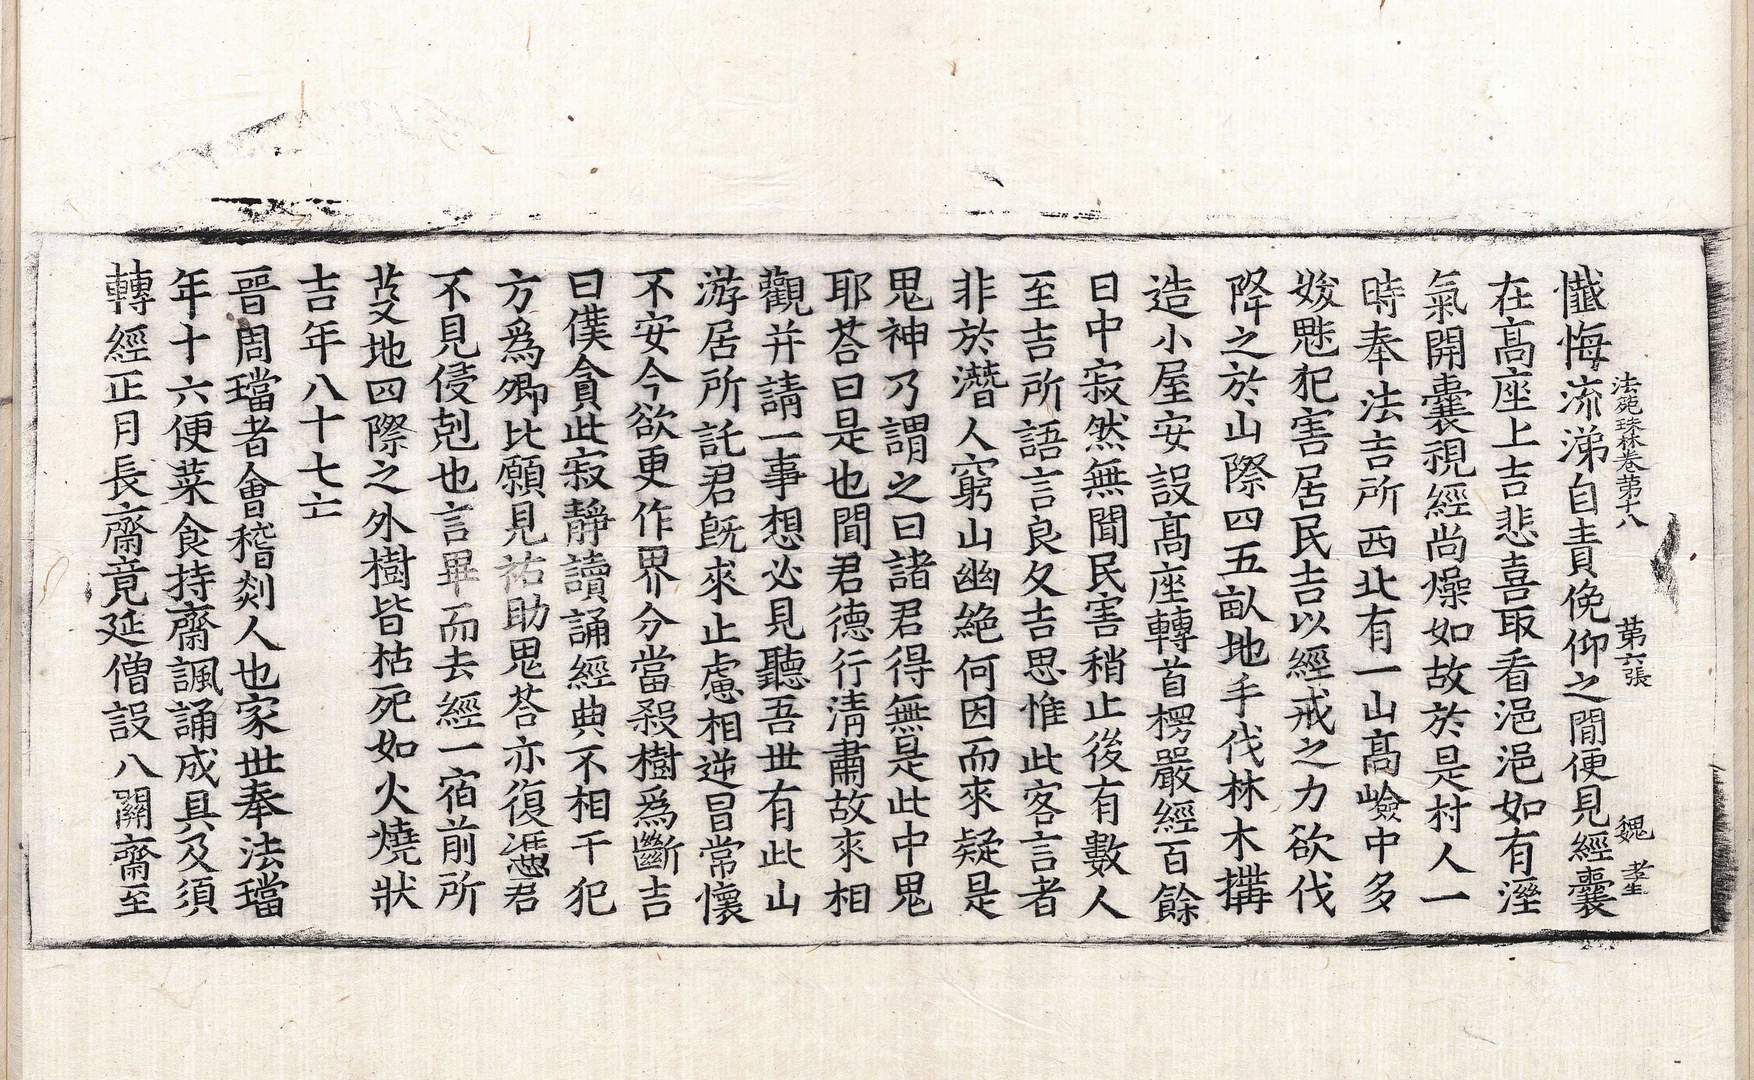 法苑珠林卷第十八 第六張 魏 孝生
懺悔流涕自責俛仰之間便見經囊
在高座上吉悲喜取看浥浥如有溼
氣開囊視經尚燥如故於是村人一
時奉法吉所西北有一山高嶮中多
妭魋犯害居民吉以經戒之力欲伐
降之於山際四五畝地手伐林木搆
造小屋安設高座轉首楞嚴經百餘
日中寂然無聞民害稍止後有數人
至吉所語言良久吉思惟此客言者
非於潛人窮山幽絕何因而來疑是
鬼神乃謂之曰諸君得無是此中鬼
耶荅曰是也聞君德行清肅故來相
觀并請一事想必見聽吾世有此山
游居所託君旣來止慮相逆冒常懷
不安今欲更作界分當殺樹爲斷吉
曰僕貪此寂靜讀誦經典不相干犯
方爲卿比願見祐助鬼荅亦復憑君
不見侵剋也言畢而去經一宿前所
芟地四際之外樹皆枯死如火燒狀
吉年八十七亡
晉周璫者會稽剡人也家世奉法璫
年十六便菜食持齋諷誦成具及須
轉經正月長齋竟延僧設八關齋至